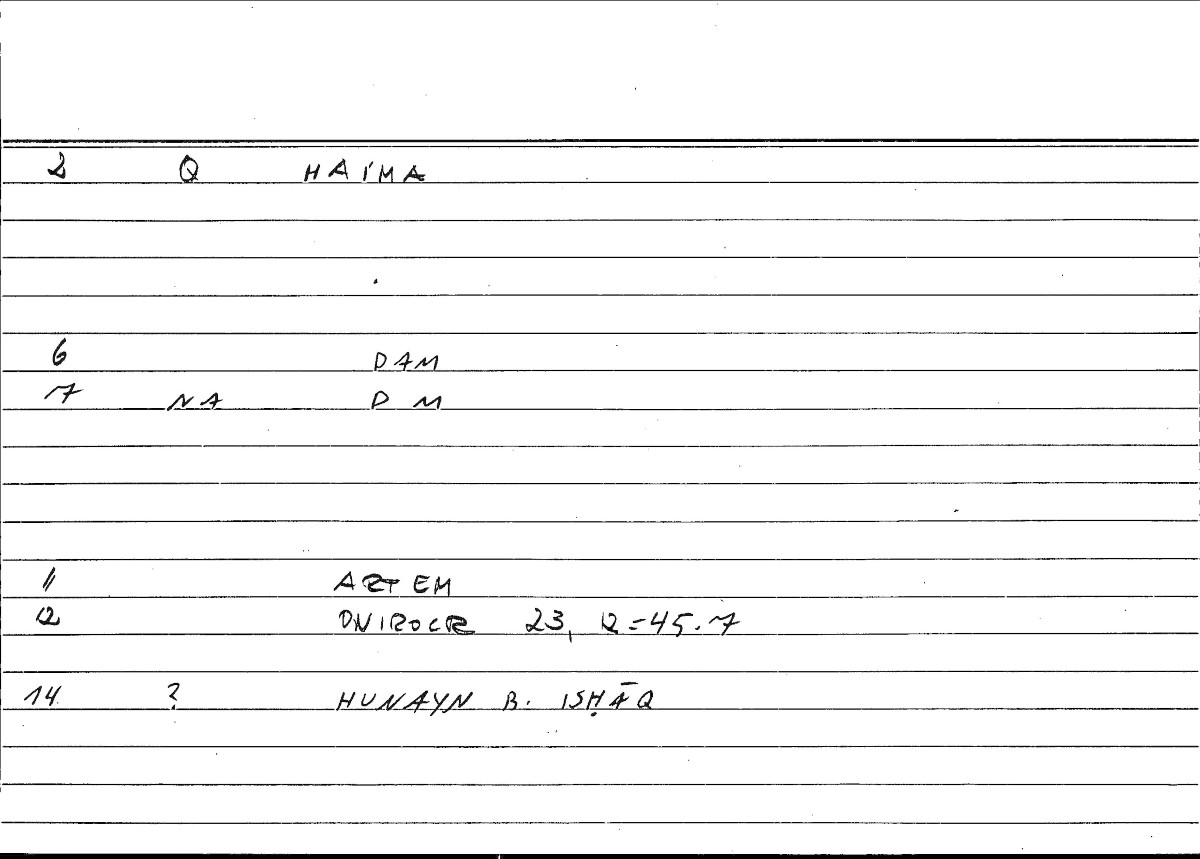 2 Q HAÍMA
6 DAM
7 NA D M
11 ARTEM
12 ONIROCR 23, 12=45.7
14 ? HUNAYN B. ISḤĀQ